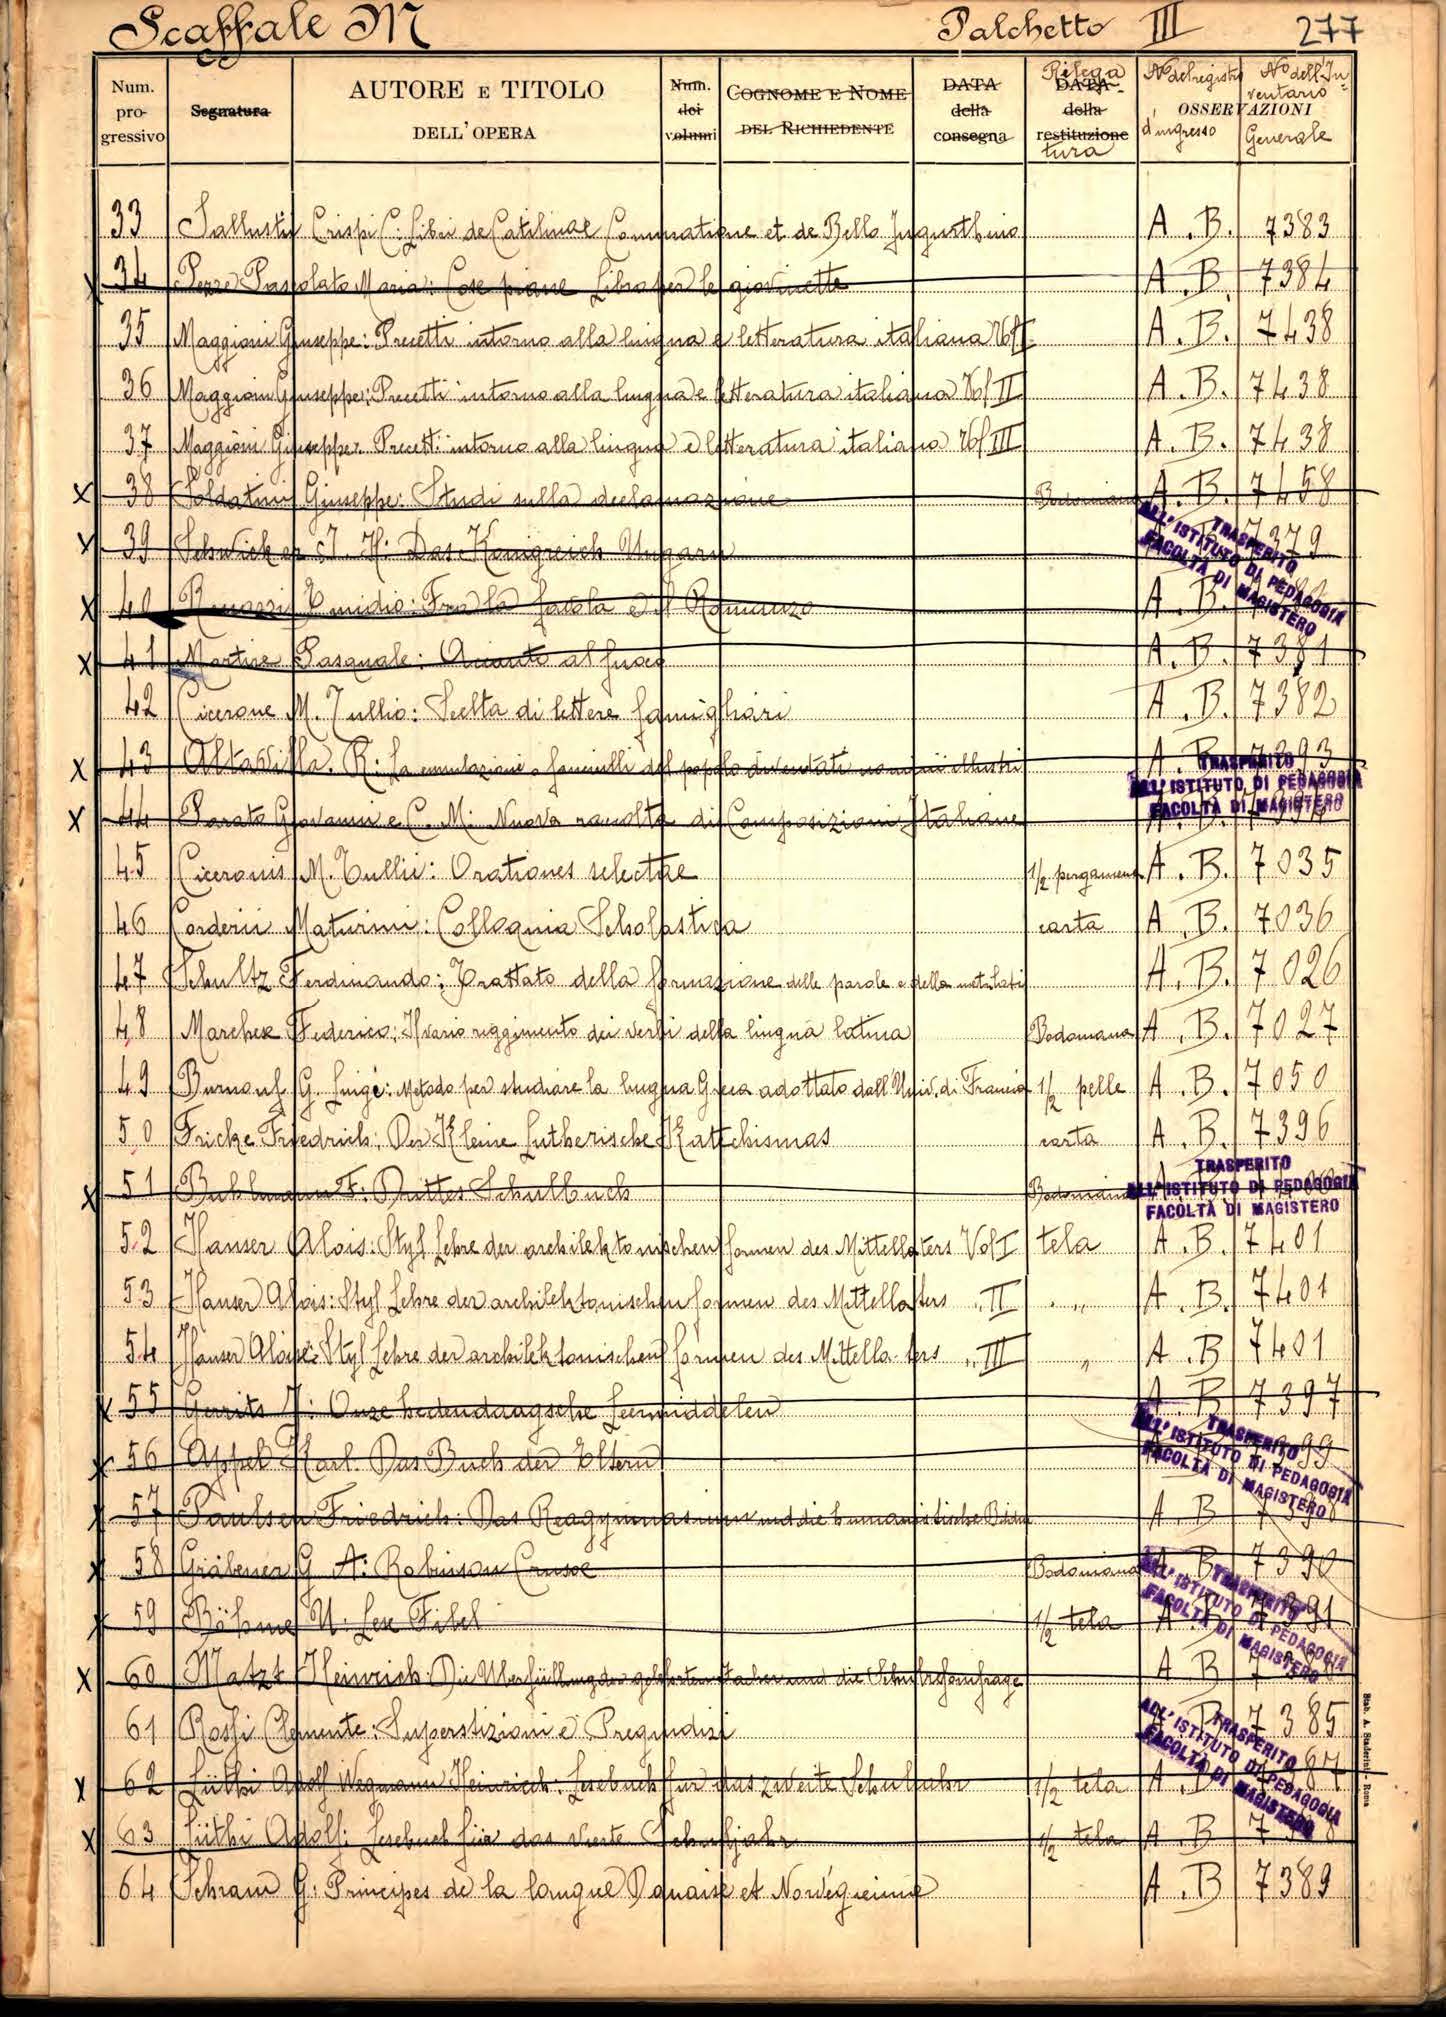 Scaffale M Palchetto III 277
Num. progressivo Segnatura AUTORE E TITOLO DELL'OPERA Num. dei volumi COGNOME E NOME DEL RICHIEDENTE DATA della consegna DATA della restituzione Rilegatura OSSERVAZIONI No del registro d'ingresso No dell'Inventario Generale
33 Sallustii Crispi C: Libri de Catilinae Coniuratione et de Bello Jugurthino A. B. 7383
x 34 Pezzè Pascolato Maria: Cose piane Libro per le giovinette A. B. 7384
35 Maggioni Giuseppe: Precetti intorno alla lingua e letteratura italiana Vol I A. B. 7438
36 Maggioni Giuseppe: Precetti intorno alla lingua e letteratura italiana Vol II A. B. 7438
37 Maggioni Giuseppe: Precetti intorno alla lingua e letteratura italiana Vol III A. B. 7438
x 38 Soldatini Giuseppe: Studi sulla declamazione Bodoniana A. B. 7458
x 39 Schwicker J. H: Das Königreich Ungarn 7379
TRASFERITO
ALL'ISTITUTO DI PEDAGOGIA
FACOLTÀ DI MAGISTERO
x 40 Emidio: Fra la favola e il Romanzo A. B.
x 41 Martire Pasquale: Accanto al fuoco A. B. 7381
42 Cicerone M. Tullio: Scelta di lettere famigliari A. B. 7382
x 43 Altavilla. R: La emulazione o fanciulli del popolo diventati uomini illustri A. B. 7393
TRASFERITO
ALL'ISTITUTO DI PEDAGOGIA
FACOLTÀ DI MAGISTERO
x 44 Porato Giovanni e C. M: Nuova raccolta di Composizioni Italiane A. B.
45 Ciceronis M. Tullii: Orationes selectae 1/2 pergamena A. B. 7035
46 Corderii Maturini: Colloquia Scholastica carta A. B. 7036
47 Schultz Ferdinando: Trattato della formazione delle parole e della A. B. 7026
48 Marchex Federico: Il vario reggimento dei verbi della lingua latina Bodoniana A. B. 7027
49 Burnouf G. Luigi: Metodo per studiare la lingua Greca adottato dall'Univ. di Francia 1/2 pelle A. B. 7050
50 Fricke Friedrich: Der Kleine Lutherische Katechismas carta A. B. 7396
x 51 F: Drittes Schulbuch Bodoniana
TRASFERITO
ALL'ISTITUTO DI PEDAGOGIA
FACOLTÀ DI MAGISTERO
52 Hauser Alois: Styl Lehre der architektonischen formen des Mittellaters Vol I tela A. B. 7401
53 Hauser Alois: Styl Lehre der architektonischen formen des Mittellaters " II " A. B. 7401
54 Hauser Alois: Styl Lehre der architektonischen formen des Mittellaters " III " A. B 7401
x 55 Gerrits J: Onze hedendaagsche Leermiddelen A. B 7397
x 56 Appel Karl. Das Buch der Eltern
TRASFERITO
ALL'ISTITUTO DI PEDAGOGIA
FACOLTÀ DI MAGISTERO
x 57 Paulsen Friedrich: Das Reagymnasium und die humanistische A. B 7398
x 58 Gräbener G A: Robinson Crusoe Bodoniana A. B 7390
x 59 Böhme U: Lese Fibel 1/2 tela A. B 7391
TRASFERITO
ALL'ISTITUTO DI PEDAGOGIA
FACOLTÀ DI MAGISTERO
x 60 Matzt Heinrich: Die Uberfüllung der gelehrten Facher und die Schulreformfrage A B
61 Rossi Clemente: Superstizioni e Pregiudizi 7385
TRASFERITO
ALL'ISTITUTO DI PEDAGOGIA
FACOLTÀ DI MAGISTERO
x 62 Lüthi Adolf Wegmann Heinrich: Lesebuch für das zweite Schuljahr 1/2 tela A. B
x 63 Lüthi Adolf: Lesebuch für das vierte Schuljahr 1/2 tela A. B
64 Schram G: Principes de la langue Danaise et Norvégienne A. B 7389
Stab. A. Staderini - Roma